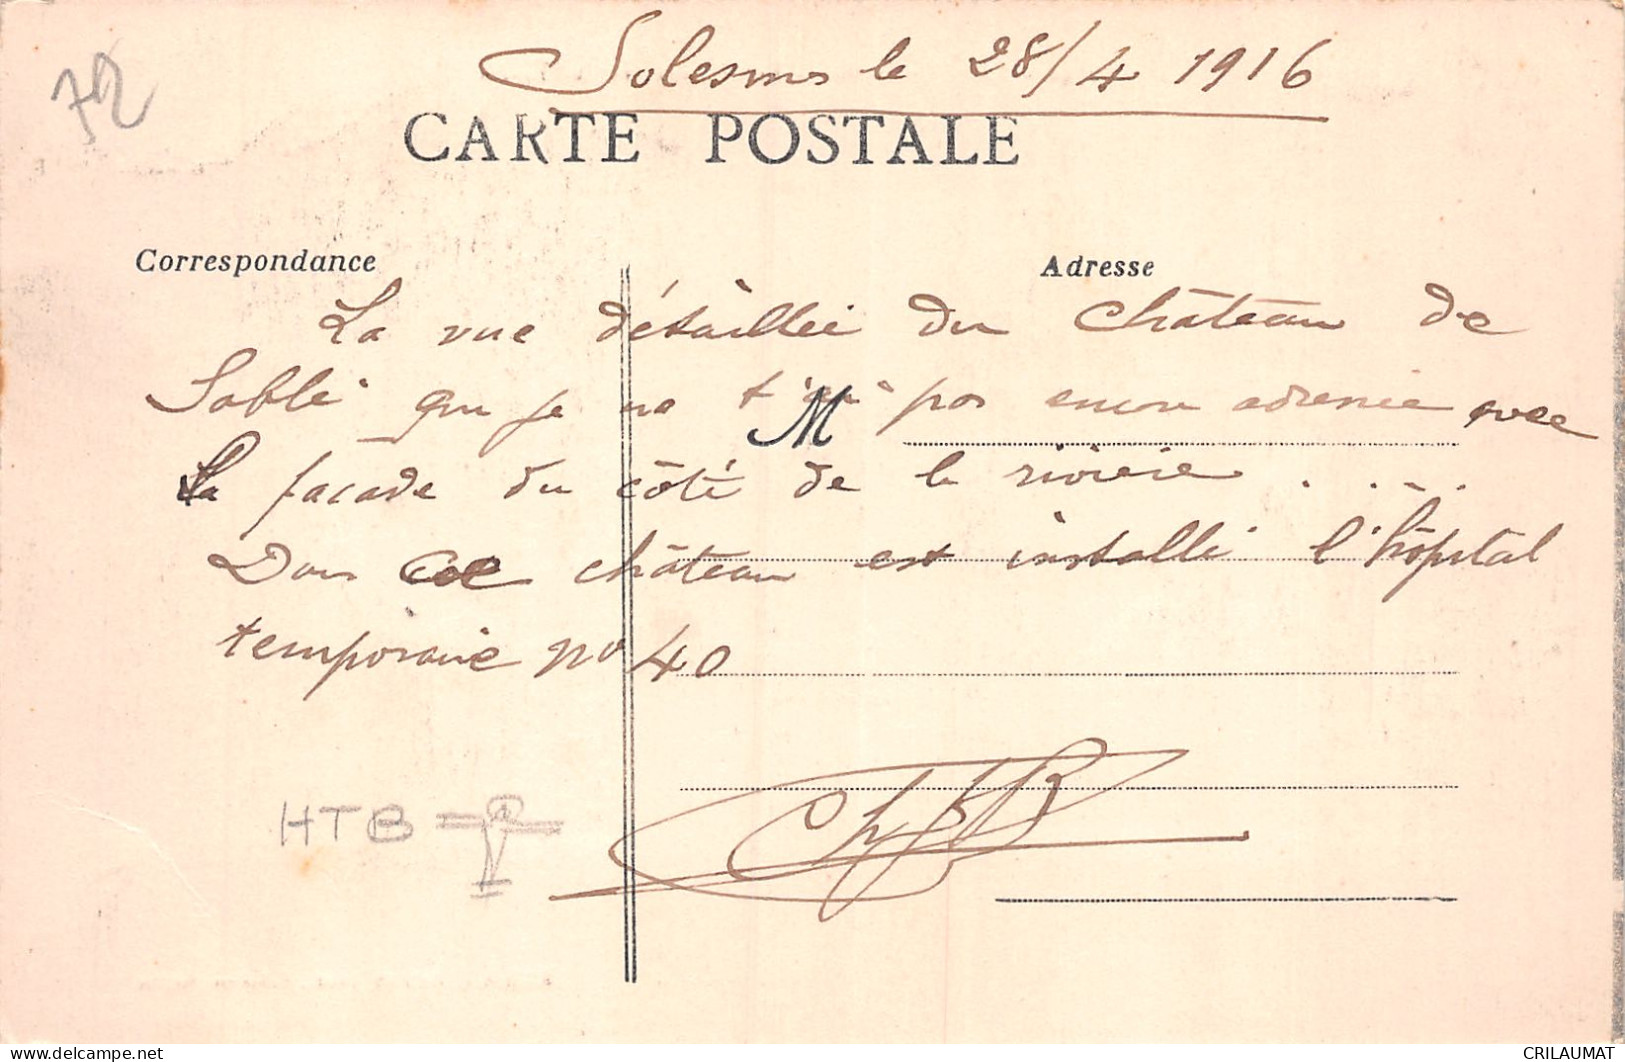 72
Solesmes le 28/4 1916
CARTE POSTALE
Correspondance
Adresse
La vue détaillée du château de
Sablé que je ne t'ai pas encore adressée avec
M
la façade du côté de la rivière . . . .
Dans ce château est installé l'hôpital
temporaire no 40
HTB
delcampe.net
CRILAUMAT